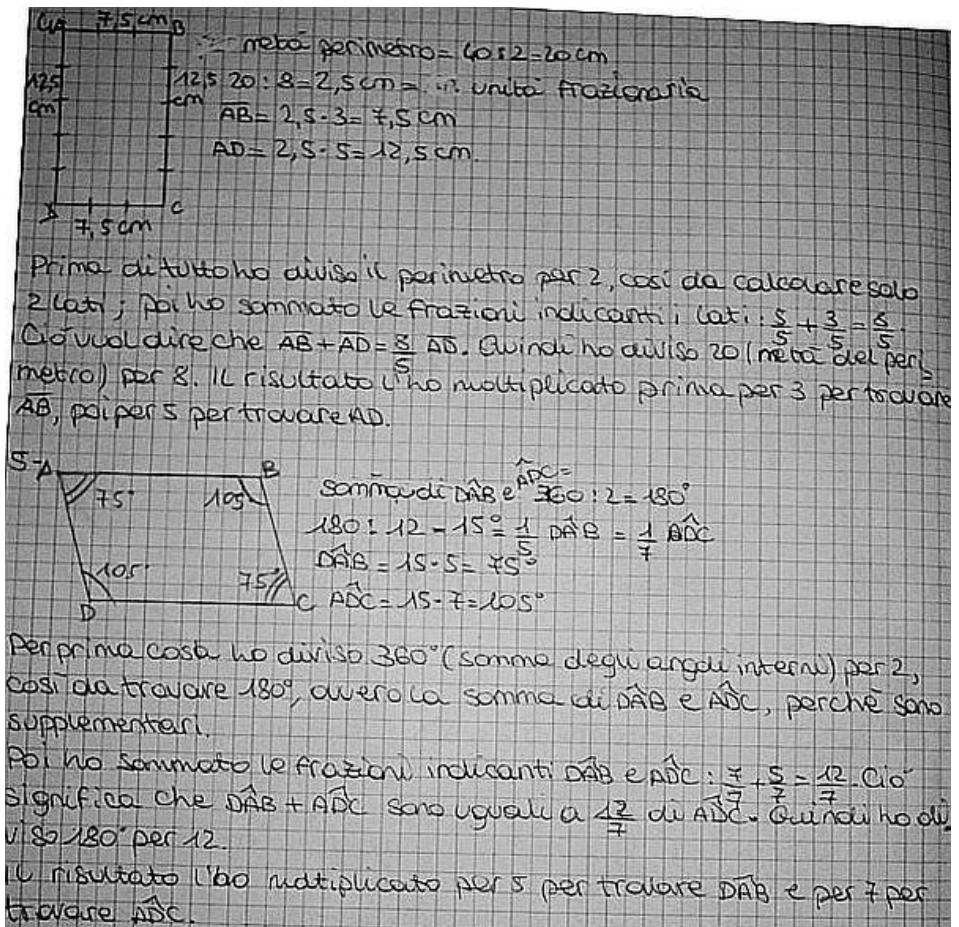 A 7,5cm B
metà perimetro = 40:2=20 cm
12,5 cm
12,5 cm
20:8=2,5 cm = unità frazionaria
AB = 2,5·3= 7,5 cm
AD = 2,5·5= 12,5 cm.
C
7,5 cm
Prima di tutto ho diviso il perimetro per 2, così da calcolare solo
2 lati; poi ho sommato le frazioni indicanti i lati: 5/5 + 3/5 = 8/5.
Ciò vuol dire che AB + AD = 8/5 AD. Quindi ho diviso 20 (metà del peri
metro) per 8. Il risultato l'ho moltiplicato prima per 3 per trovare
AB, poi per 5 per trovare AD.
5- A B
75° 105
105° 75
D C
somma di DÂB e ADC =
360:2=180°
180:12=15°= 1/5 DÂB = 1/7 ADC
DÂB = 15·5= 75°
ADC = 15·7=105°
Per prima cosa ho diviso 360° (somma degli angoli interni) per 2,
così da trovare 180°, ovvero la somma di DÂB e ADC, perché sono
supplementari.
Poi ho sommato le frazioni indicanti DÂB e ADC: 7/7 + 5/7 = 12/7. Ciò
significa che DÂB + ADC sono uguali a 12/7 di ADC. Quindi ho di
viso 180° per 12.
Il risultato l'ho moltiplicato per 5 per trovare DÂB e per 7 per
trovare ADC.